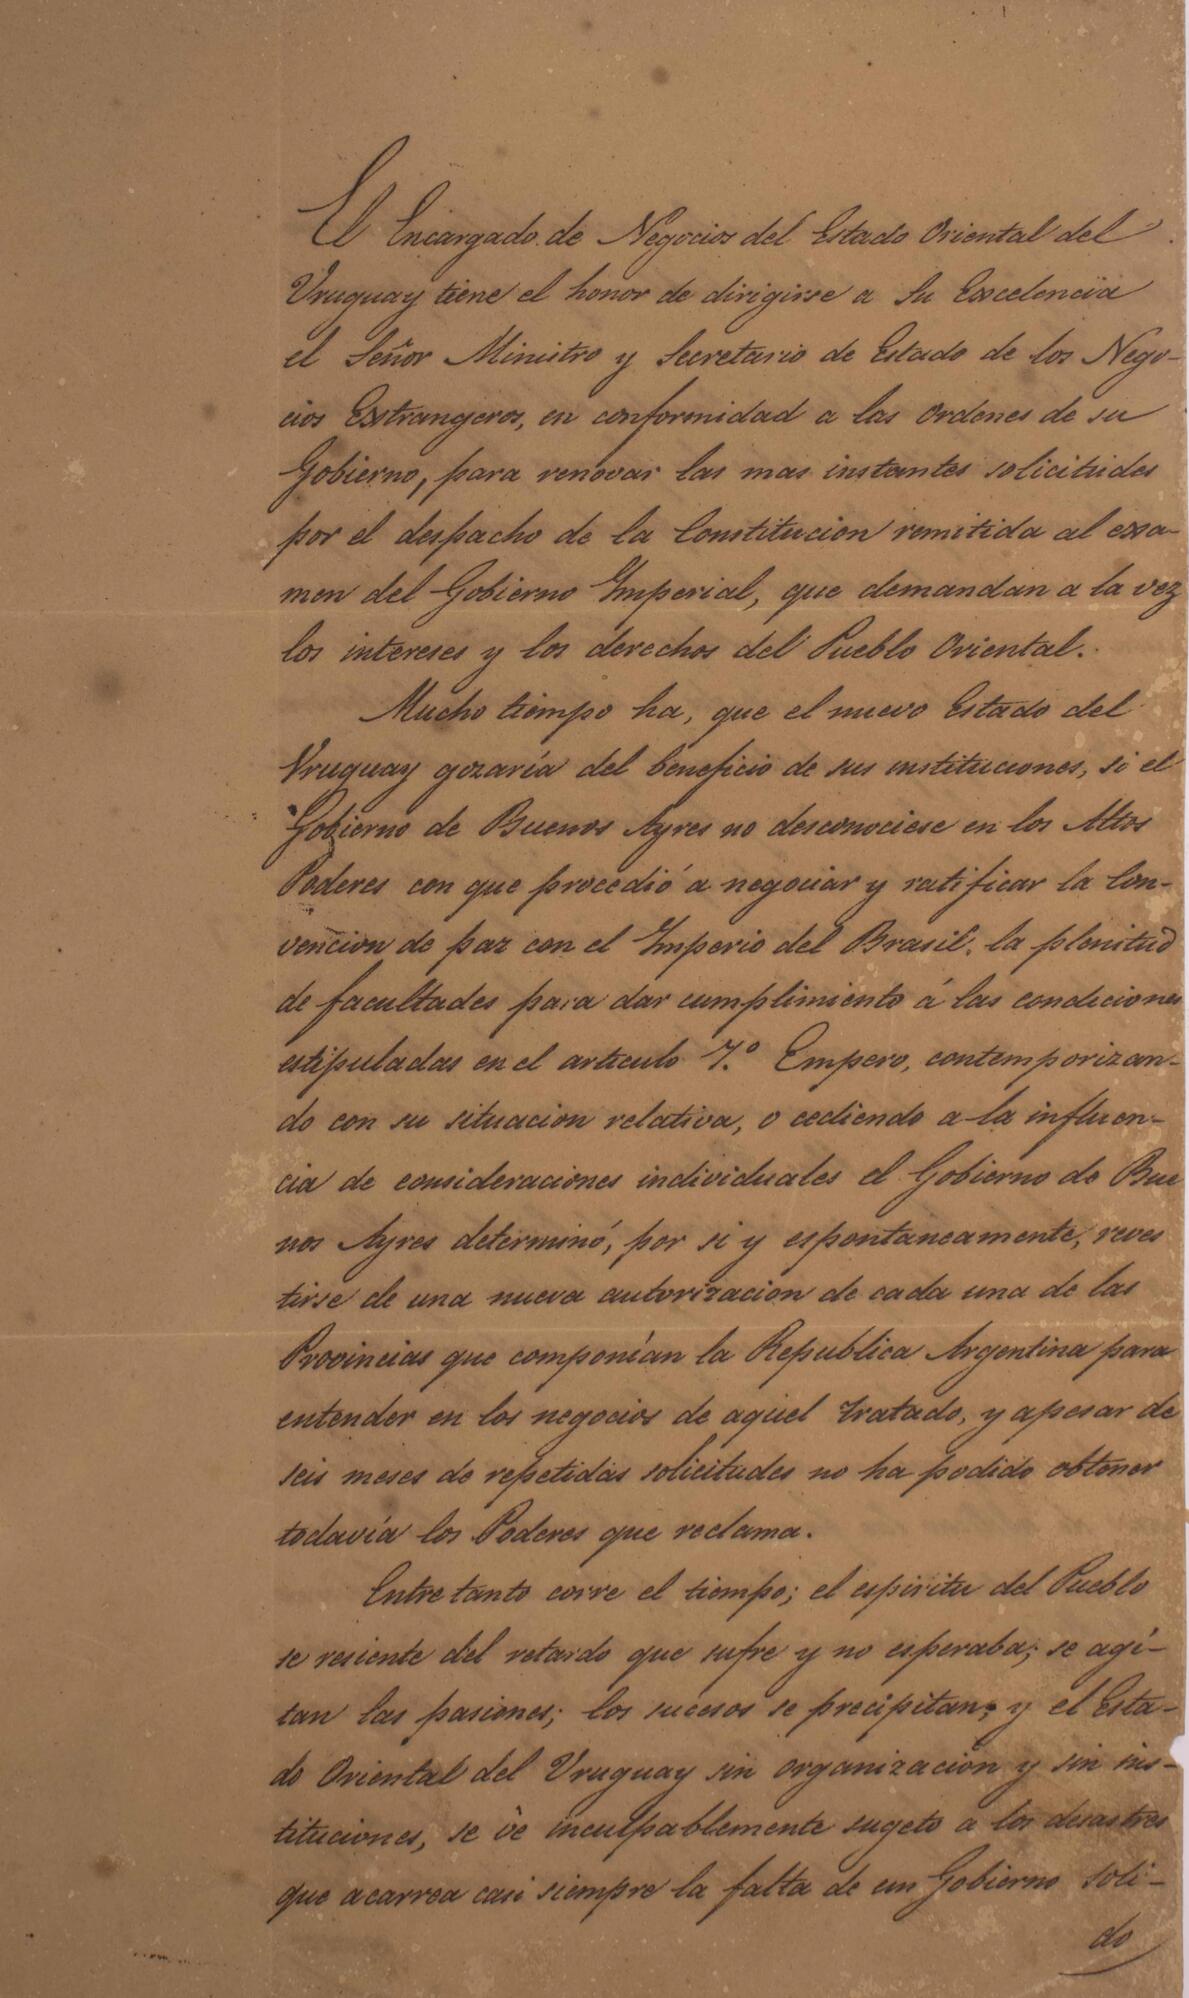 El Encargado de Negocios del Estado Oriental del
Uruguay tiene el honor de dirigirse a Su Excelencia
el Señor Ministro y Secretario de Estado de los Nego-
cios Extrangeros, en conformidad a las ordenes de su
Gobierno, para renovar las mas instantes solicitudes
por el despacho de la Constitucion remitida al exa-
men del Gobierno Imperial, que demandan a la vez
los intereses y los derechos del Pueblo Oriental.
Mucho tiempo ha, que el nuevo Estado del
Uruguay gozaría del beneficio de sus instituciones, si el
Gobierno de Buenos Ayres no desconociese en los Altos
Poderes con que procedió a negociar y ratificar la Con-
vencion de paz con el Imperio del Brasil, la plenitud
de facultades para dar cumplimiento á las condiciones
estipuladas en el articulo 7.º Empero, contemporizan-
do con su situacion relativa, o cediendo a la influen-
cia de consideraciones individuales el Gobierno de Bue
nos Ayres determinó, por si y espontaneamente, reves
tirse de una nueva autorizacion de cada una de las
Provincias que componían la Republica Argentina para
entender en los negocios de aquel tratado, y apesar de
seis meses de repetidas solicitudes no ha podido obtener
todavía los Poderes que reclama.
Entre tanto corre el tiempo; el espiritu del Pueblo
se resiente del retardo que sufre y no esperaba; se agi-
tan las pasiones; los sucesos se precipitan; y el Esta-
do Oriental del Uruguay sin organizacion y sin ins-
tituciones, se vè inculpablemente sugeto a los desastres
que acarrea casi siempre la falta de un Gobierno soli-
do